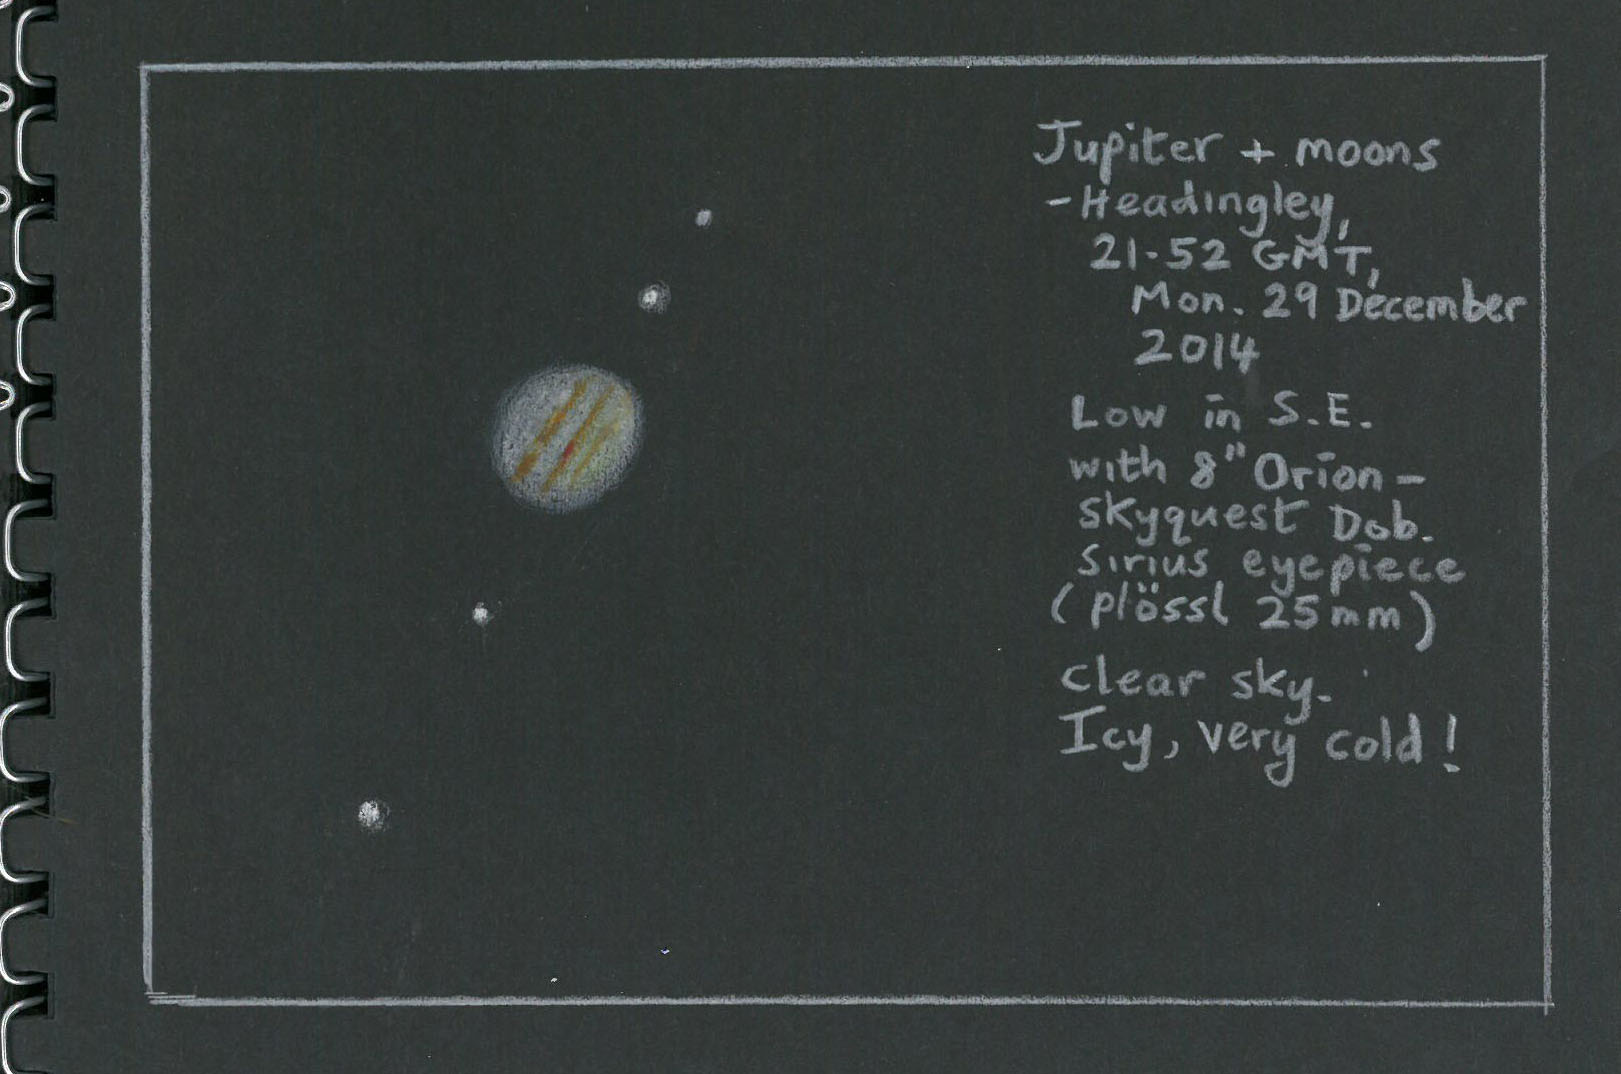 Jupiter + moons
- Headingley,
21-52 GMT,
Mon. 29 December
2014
Low in S.E.
with 8" Orion -
skyquest Dob.
Sirius eyepiece
(plössl 25mm)
Clear sky.
Icy, very cold!